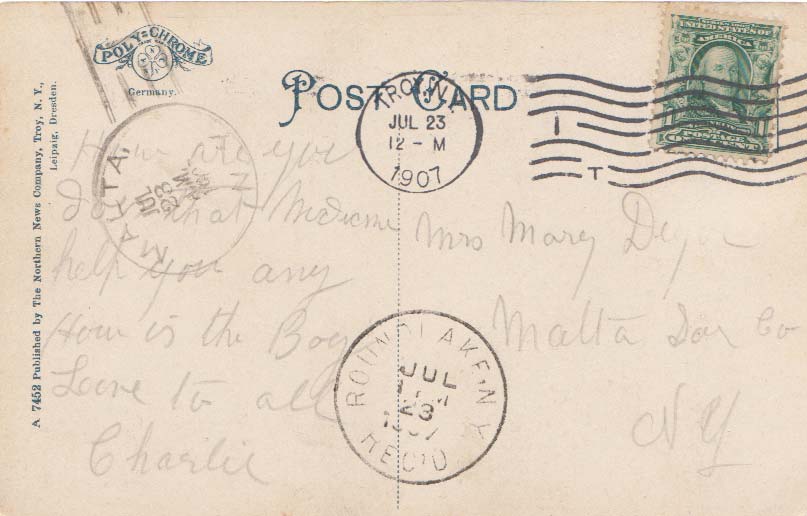 POLY-CHROME
Germany.
POST CARD
TROY, N.Y.
JUL 23
12 - M
1907
T
UNITED STATES OF AMERICA
POSTAGE
ONE CENT
A 7452 Published by The Northern News Company, Troy, N. Y.,
Leipzig, Dresden.
MALTA
JUL
23
How are you
that Medicine
help you any
How is the Boy
Love to all
Charlie
Mrs Mary
Malta Co
NY
ROUND LAKE, N.Y.
JUL
23
1907
REC'D